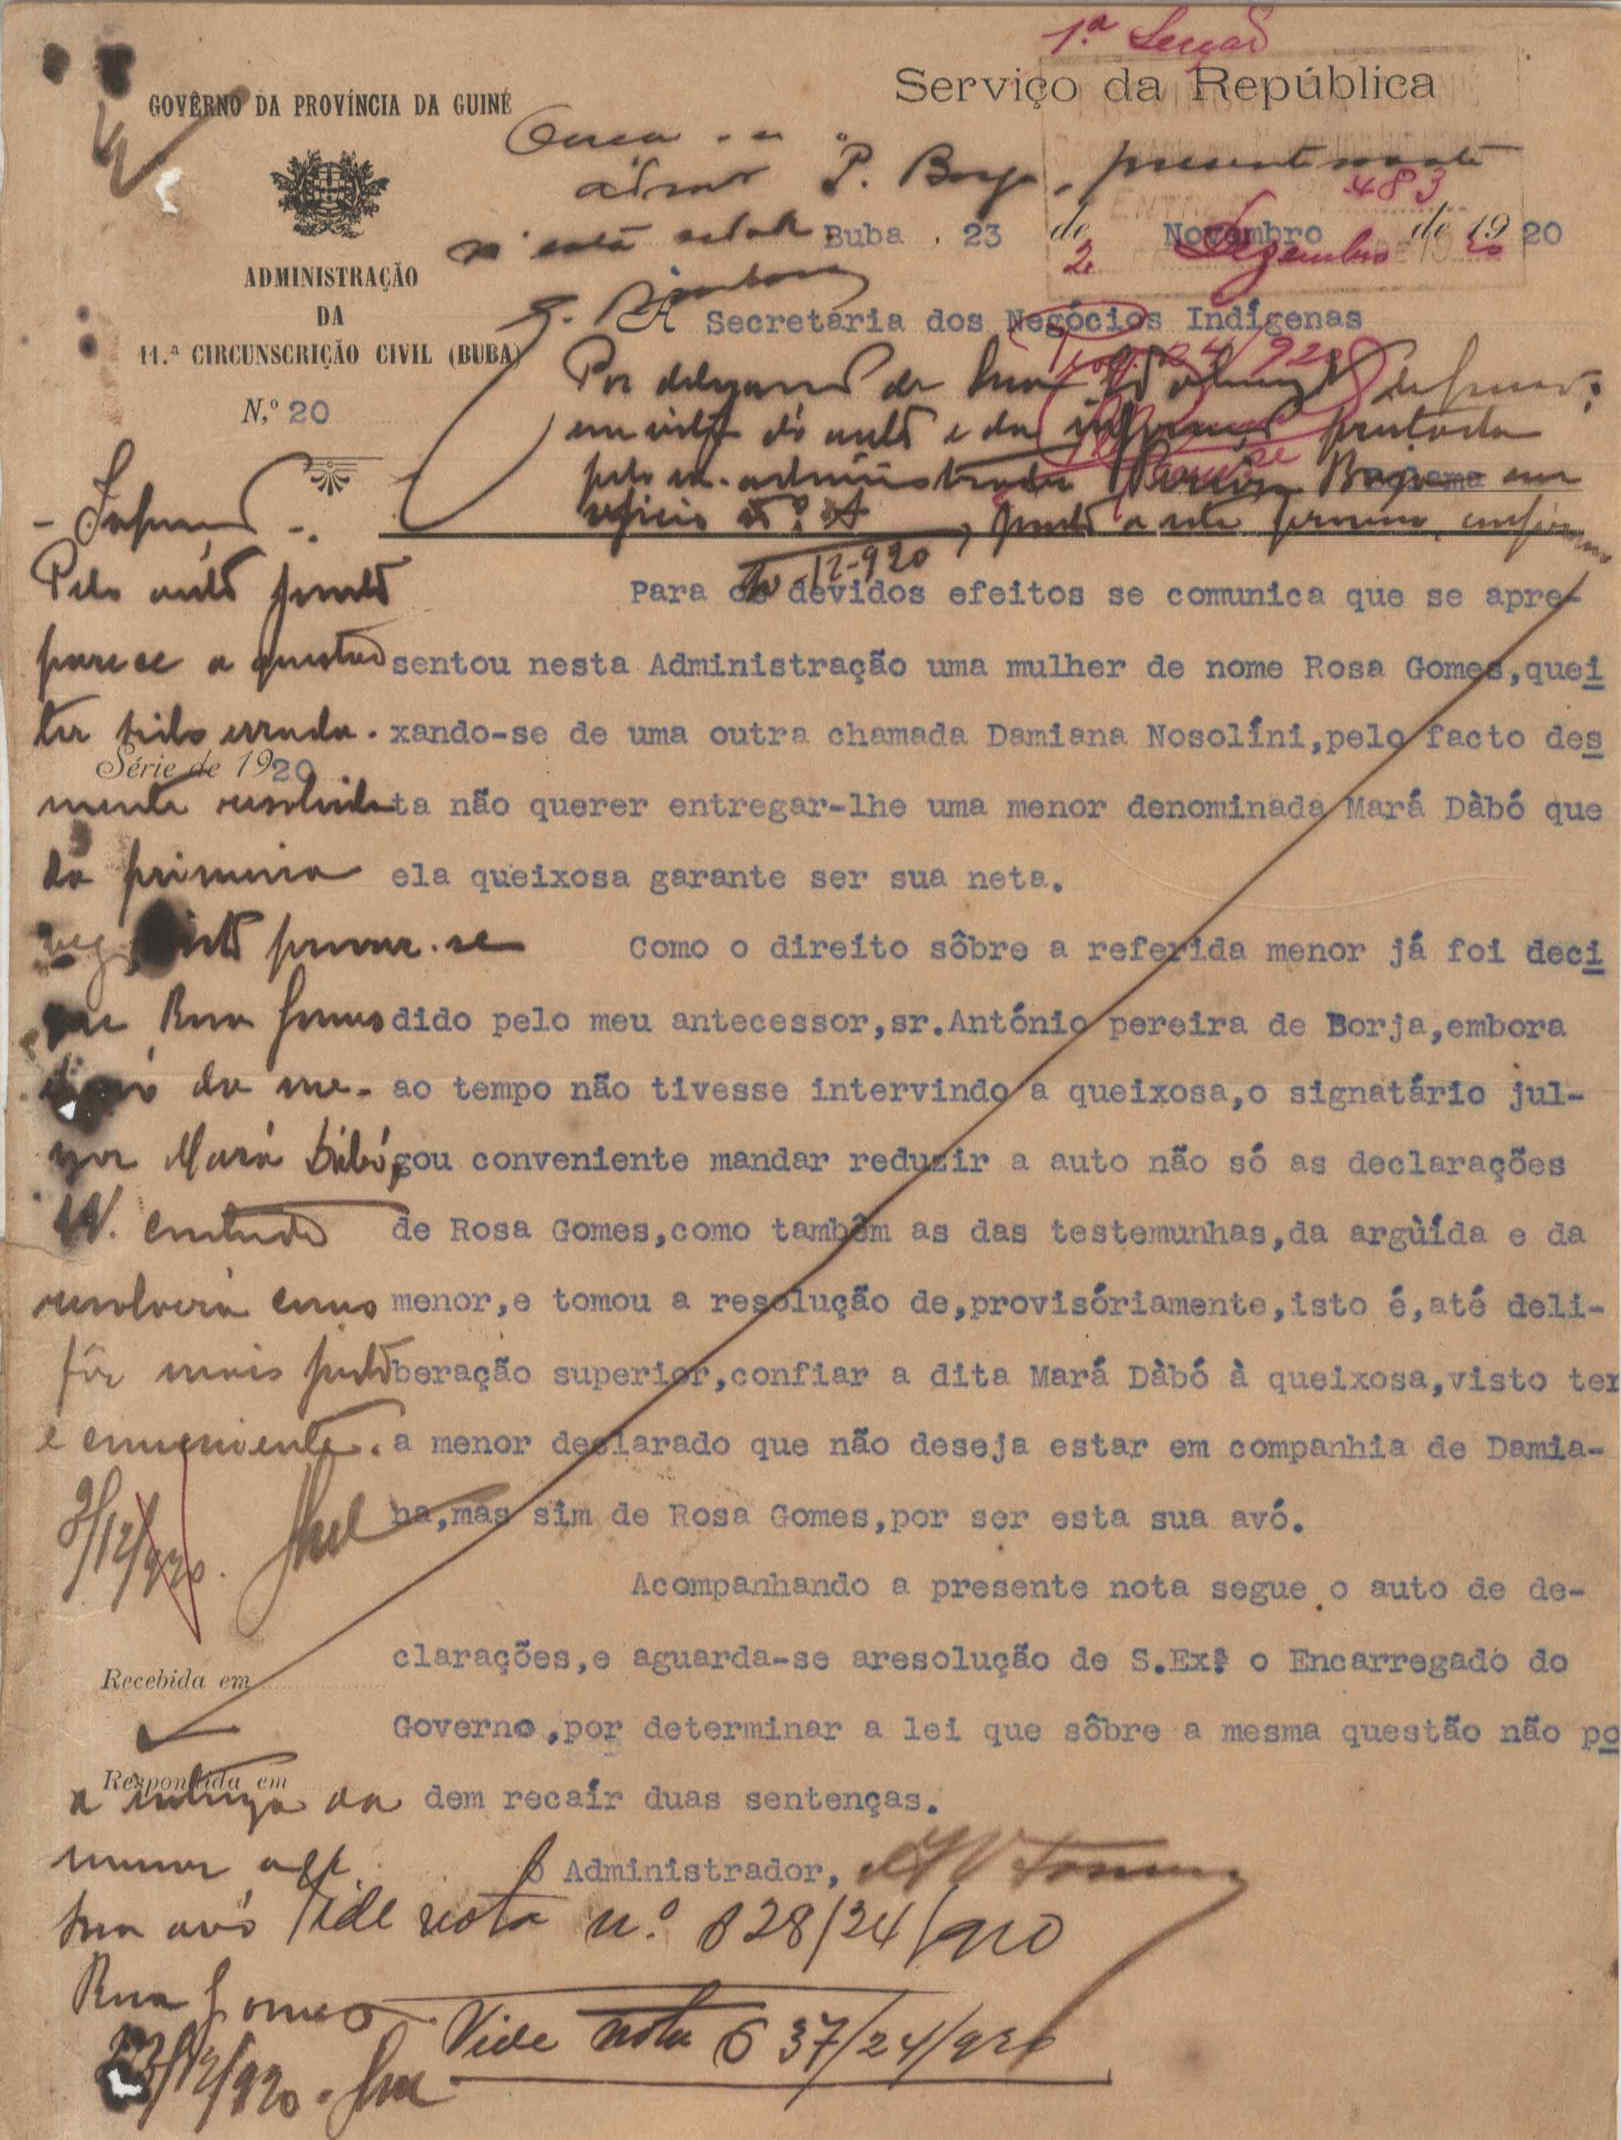 1.ª Secção
Serviço da República
GOVÊRNO DA PROVÍNCIA DA GUINÉ
P. Borja, presentemente
483
Buba, 23 de Novembro de 1920
2 Dezembro 20
ADMINISTRAÇÃO
DA
11.ª CIRCUNSCRIÇÃO CIVIL (BUBA)
N.º 20
Á Secretária dos Negócios Indígenas
Por delegação de Sua
em vista do auto e da informação prestada
pelo administrador Pereira Borja em
oficio n.º junto a este
12-920
- Informação -.
Pelo auto junto
parece a questão
ter sido errada-
mente resolvida
da primeira
vez provar-se
que Rosa Gomes
é avó da me-
nor Mará Dàbó,
V. Ex.ª contudo
resolverá como
fôr mais justo
e conveniente.
3/12/920.
Para os devidos efeitos se comunica que se apre-
sentou nesta Administração uma mulher de nome Rosa Gomes,quei
xando-se de uma outra chamada Damiana Nosolíni,pelo facto des
Série de 1920
ta não querer entregar-lhe uma menor denominada Mará Dàbó que
ela queixosa garante ser sua neta.
Como o direito sôbre a referida menor já foi deci
dido pelo meu antecessor,sr.António pereira de Borja,embora
ao tempo não tivesse intervindo a queixosa,o signatário jul-
gou conveniente mandar reduzir a auto não só as declarações
de Rosa Gomes,como tambêm as das testemunhas,da argùída e da
menor,e tomou a resolução de,provisóriamente,isto é,até deli-
beração superior,confiar a dita Mará Dàbó à queixosa,visto ter
a menor declarado que não deseja estar em companhia de Damia-
na,mas sim de Rosa Gomes,por ser esta sua avó.
Acompanhando a presente nota segue o auto de de-
clarações,e aguarda-se aresolução de S.Exª o Encarregado do
Recebida em
Governo,por determinar a lei que sôbre a mesma questão não po
Respondida em
dem recaír duas sentenças.
O Administrador,
a entrega da
menor
sua avó
Rosa Gomes
23/12/920.
Vide nota n.º 828/24/920
Vide nota 637/24/920